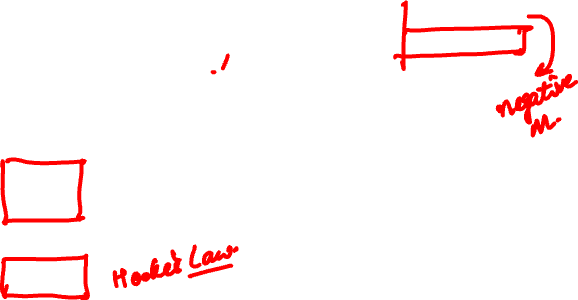 negative
M.
Hooke's Law.